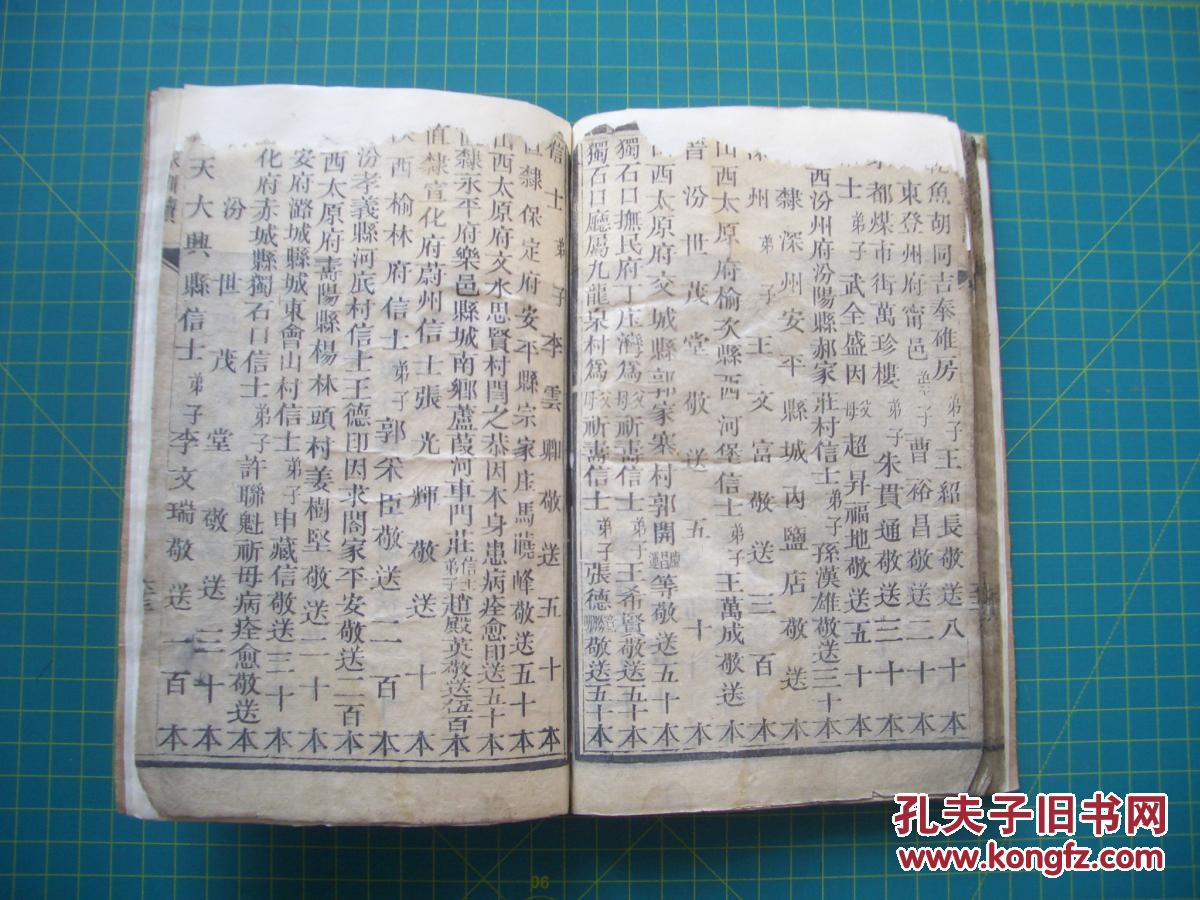 魚胡同吉奉碓房弟子王紹長敬送八十本
東登州府甯邑弟子曹裕昌敬送二十本
都煤市街萬珍樓弟子朱貫通敬送三十本
士弟子武全盛因父母超昇福地敬送五十本
西汾州府汾陽縣郝家莊村信士弟子孫漢雄敬送三十本
隸深州安平縣城內鹽店敬送本
州弟子王文富敬送三百本
山西太原府榆次縣西河堡信士弟子王萬成敬送本
晉汾世茂堂敬送五十本
西太原府交城縣郭家寨村郭開等敬送五十本
獨石口撫民府丁庄灣爲父母祈壽信士弟子王希賢敬送五十本
獨石口廳屬九龍泉村爲父母祈壽信士弟子張德敬送五十本
信士弟子李雲卿敬送五十本
直隸保定府安平縣宗家庄馬蕘峰敬送五十本
山西太原府文水思賢村閆之恭因本身患病痊愈印送五十本
直隸永平府樂邑縣城南鄉蘆葭河車門莊信士弟子趙殿英敬送伍百本
直隸宣化府蔚州信士張光輝敬送十本
西榆林府信士弟子郭宋臣敬送二百本
汾孝義縣河底村信士王德印因求閤家平安敬送二百本
西太原府壽陽縣楊林頭村姜樹堅敬送二十本
安府潞城縣城東會山村信士弟子申藏信敬送三十本
化府赤城縣獨石口信士弟子許聯魁祈母病痊愈敬送本
汾世茂堂敬送三十本
天大興縣信士弟子李文瑞敬送一百本
孔夫子旧书网
www.kongfz.com